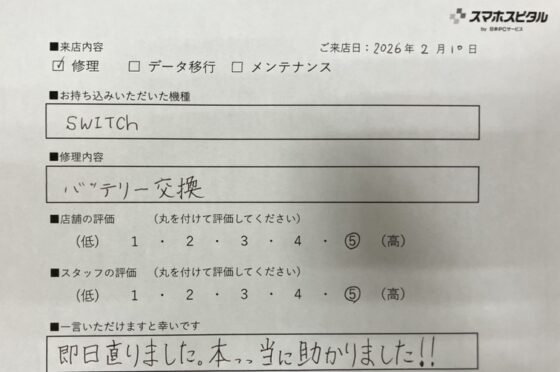 スマホスピタル
by 日本PCサービス
■来店内容
ご来店日：2026年 2 月 10 日
☑ 修理 □ データ移行 □ メンテナンス
■お持ち込みいただいた機種
SWITCh
■修理内容
バッテリー交換
■店舗の評価 （丸を付けて評価してください）
（低） 1 ・ 2 ・ 3 ・ 4 ・ ⑤ （高）
■スタッフの評価 （丸を付けて評価してください）
（低） 1 ・ 2 ・ 3 ・ 4 ・ ⑤ （高）
■一言いただけますと幸いです
即日直りました。本っっ当に助かりました!!